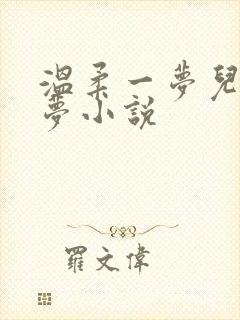 溫柔一夢兒
夢小說
羅文偉